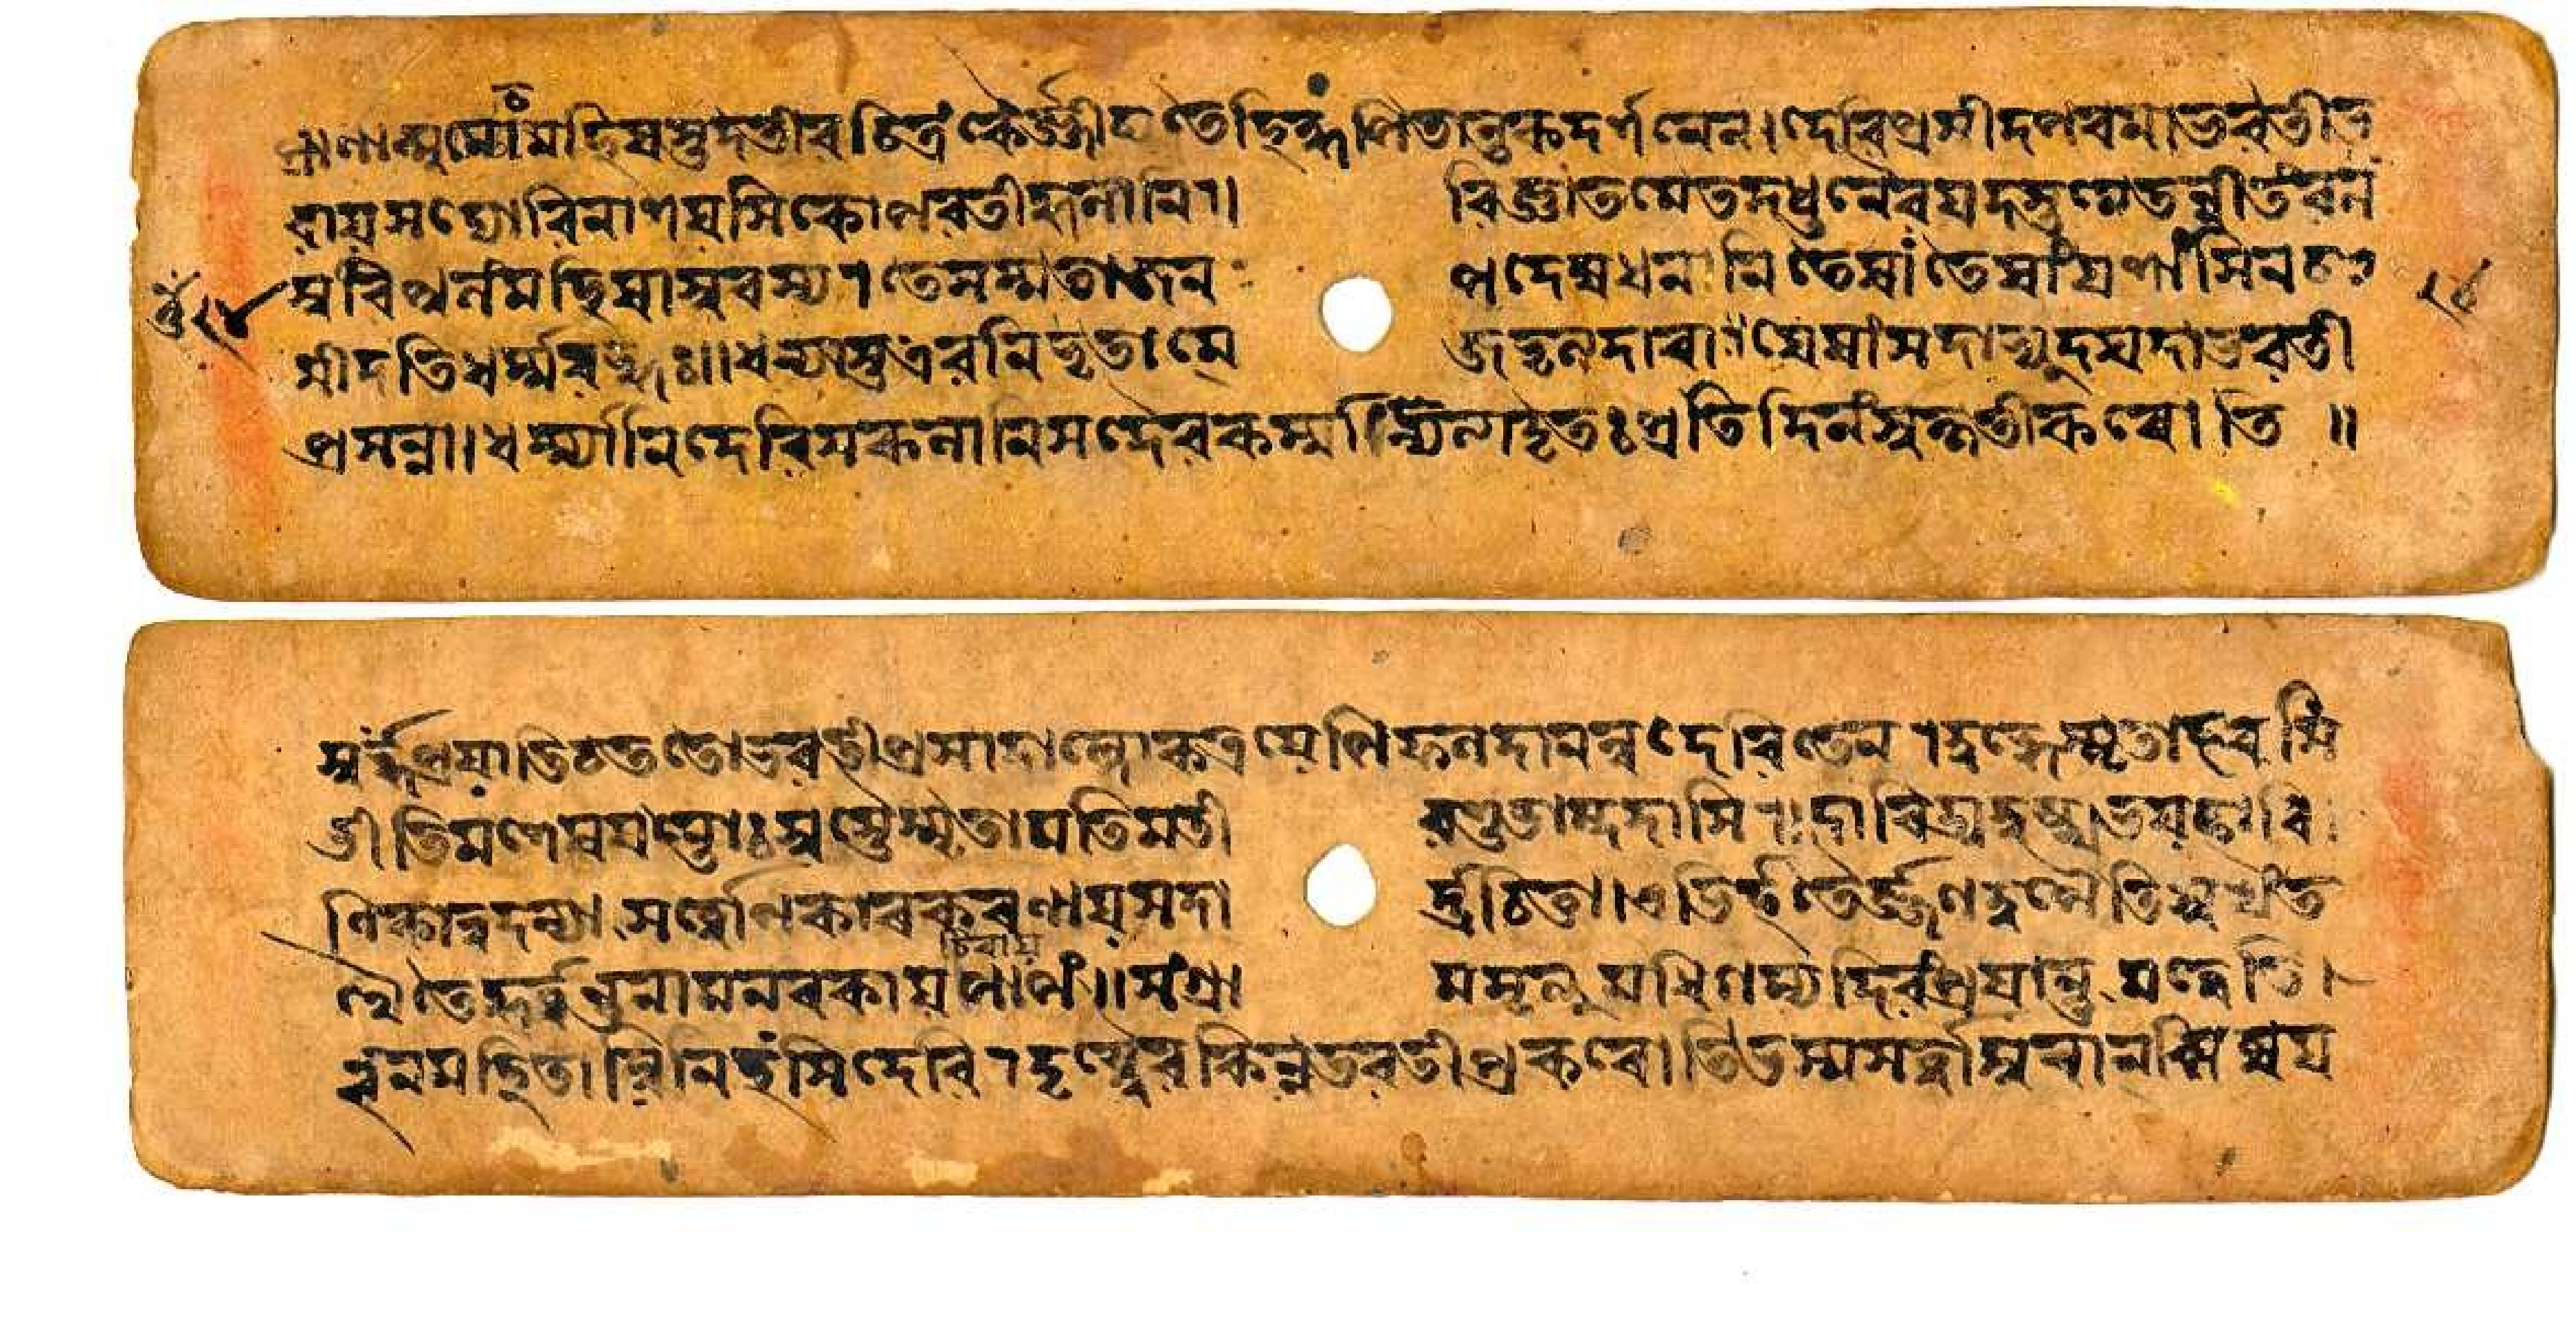 প্রাণান্মুমোচ মহিষস্তদতীব চিত্রং কৈর্জ্জীব্যতে হি কুপিতান্তকদর্শনেন। দেবি প্রসীদ পরমা ভবতী ভ
বায় সদ্যো বিনাশয়সি কোপবতী কুলানি। বিজ্ঞাতমেতদধুনৈব যদস্তমেতন্নীতং বলং
সুবিপুলং মহিষাসুরস্য। তে সম্মতা জনপদেষু ধনানি তেষাং তেষাং যশাংসি ন চ
সীদতি ধর্ম্মবর্গঃ॥ ধন্যাস্ত এব নিভৃতাত্মজভৃত্যদারা যেষাং সদাভ্যুদয়দা ভবতী
প্রসন্না। ধর্ম্ম্যাণি দেবি সকলানি সদৈব কর্ম্মাণ্যত্যাদৃতঃ প্রতিদিনং সুকৃতী করোতি॥
স্বর্গং প্রয়াতি চ ততো ভবতীপ্রসাদাল্লোকত্রয়েপি ফলদা ননু দেবি তেন। দুর্গে স্মৃতা হরসি
ভীতিমশেষজন্তোঃ স্বস্থৈঃ স্মৃতা মতিমতীব শুভাং দদাসি। দারিদ্র্যদুঃখভয়হারি
ণি কা ত্বদন্যা সর্ব্বোপকারকরণায় সদার্দ্রচিত্তা। এভির্হতৈর্জ্জগদুপৈতি সুখং ত
থৈতে কুর্ব্বন্তু নাম নরকায় চিরায় পাপং॥ সংগ্রামমৃত্যুমধিগম্য দিবং প্রয়ান্তু মত্বেতি।
নূনমহিতান্ বিনিহংসি দেবি। দৃষ্ট্বৈব কিন্ন ভবতী প্রকরোতি ভস্ম সর্ব্বাসুরানরিষু য